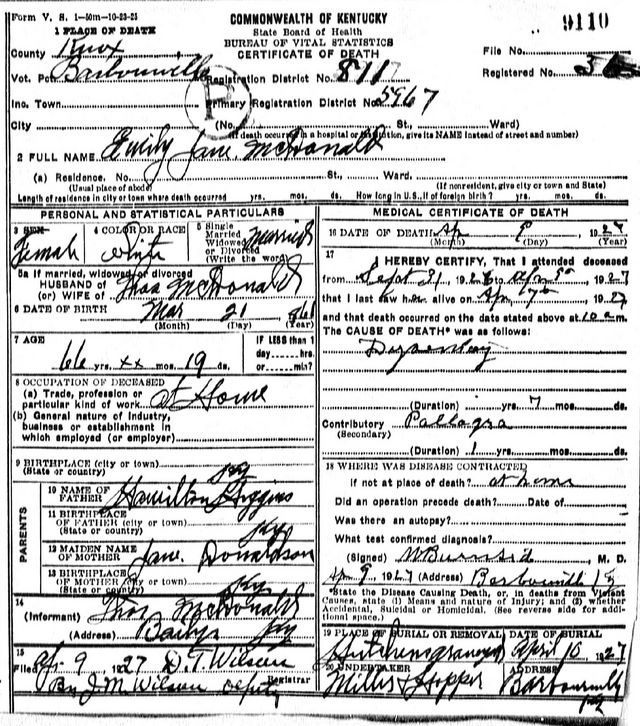 Form V. S. 1-50m-10-23-25
9110
COMMONWEALTH OF KENTUCKY
State Board of Health
BUREAU OF VITAL STATISTICS
CERTIFICATE OF DEATH
1 PLACE OF DEATH
County Knox
File No.
Vot. Pct Barbourville
Registration District No. 8117
Registered No.
Inc. Town
Primary Registration District No. 5967
P
City (No. St., Ward)
(If death occurred in a hospital or institution, give its NAME instead of street and number)
2 FULL NAME Emily Jane McDonald
(a) Residence. No. St., Ward.
(Usual place of abode) (If nonresident, give city or town and State)
Length of residence in city or town where death occurred yrs. mos. ds. How long in U.S., if of foreign birth? yrs. mos. ds.
PERSONAL AND STATISTICAL PARTICULARS
3 SEX Female
4 COLOR OR RACE white
5 Single Married Widowed or Divorced (Write the word) Married
5a If married, widowed or divorced
HUSBAND of
(or) WIFE of Thos McDonald
6 DATE OF BIRTH Mar 21 1861
(Month) (Day) (Year)
7 AGE
66 yrs. xx mos. 19 ds.
IF LESS than 1 day hrs. or min?
8 OCCUPATION OF DECEASED
(a) Trade, profession or particular kind of work at Home
(b) General nature of industry, business or establishment in which employed (or employer)
9 BIRTHPLACE (city or town)
(State or country) Ky
PARENTS
10 NAME OF FATHER Hamilton Higgins
11 BIRTHPLACE OF FATHER (city or town)
(State or country) Ky
12 MAIDEN NAME OF MOTHER Jane Donaldson
13 BIRTHPLACE OF MOTHER (city or town)
(State or country) Ky
14
(Informant) Thos McDonald
(Address) Ky
15
Filed 9 1927 D. T. Wilson
Registrar
By J. M. Wilson deputy
MEDICAL CERTIFICATE OF DEATH
16 DATE OF DEATH Ap 1927
(Month) (Day) (Year)
17
I HEREBY CERTIFY, That I attended deceased
from Sept 31, 1926 to 1927
that I last saw her alive on Ap 1927
and that death occurred on the date stated above at 10 a m.
The CAUSE OF DEATH* was as follows:
Dysentery
(Duration) yrs. 7 mos. ds.
Contributory Pallagra
(Secondary)
(Duration) 1 yrs. mos. ds.
18 WHERE WAS DISEASE CONTRACTED
If not at place of death? at home
Did an operation precede death? Date of
Was there an autopsy?
What test confirmed diagnosis?
(Signed) W Burnsid, M. D.
Ap 9 1927 (Address) Barbourvill Ky
*State the Disease Causing Death, or, in deaths from Violent Causes, state (1) Means and nature of Injury; and (2) whether Accidental, Suicidal or Homicidal. (See reverse side for additional space.)
19 PLACE OF BURIAL OR REMOVAL
DATE OF BURIAL
April 10 1927
20 UNDERTAKER
ADDRESS
Barbourville
Ky